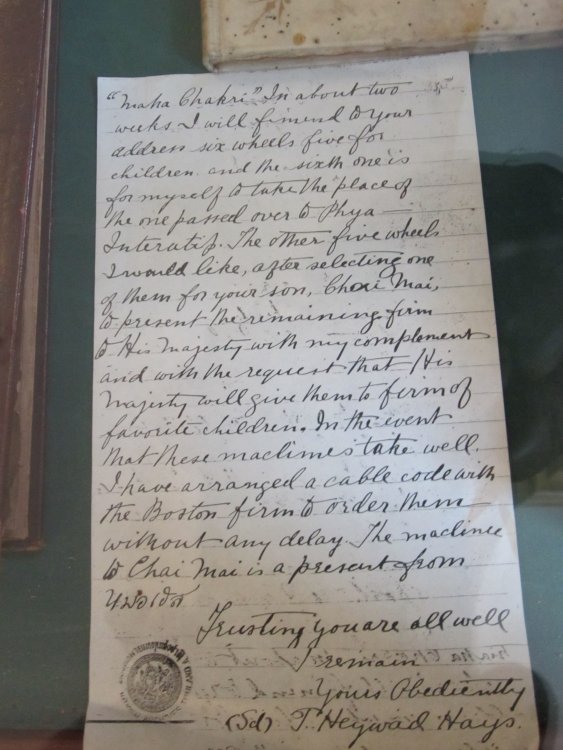 "Maha Chakri" In about two
weeks I will firnend to your
address six wheels five for
children and the sixth one is
for myself to take the place of
the one passed over to Phya
The other five wheels
I would like, after selecting one
of them for your son, Chai Mai,
to present the remaining firm
to His Majesty with my complement
and with the request that His
Majesty will give them to firm of
favorite children. In the event
that these maclimes take well.
I have arranged a cable code with
the Boston firm to order them
without any delay. The macline
to Chai Mai is a present from
Trusting you are all well
I remain
Yours Obediently
(Sd) T. Heywad Hays.